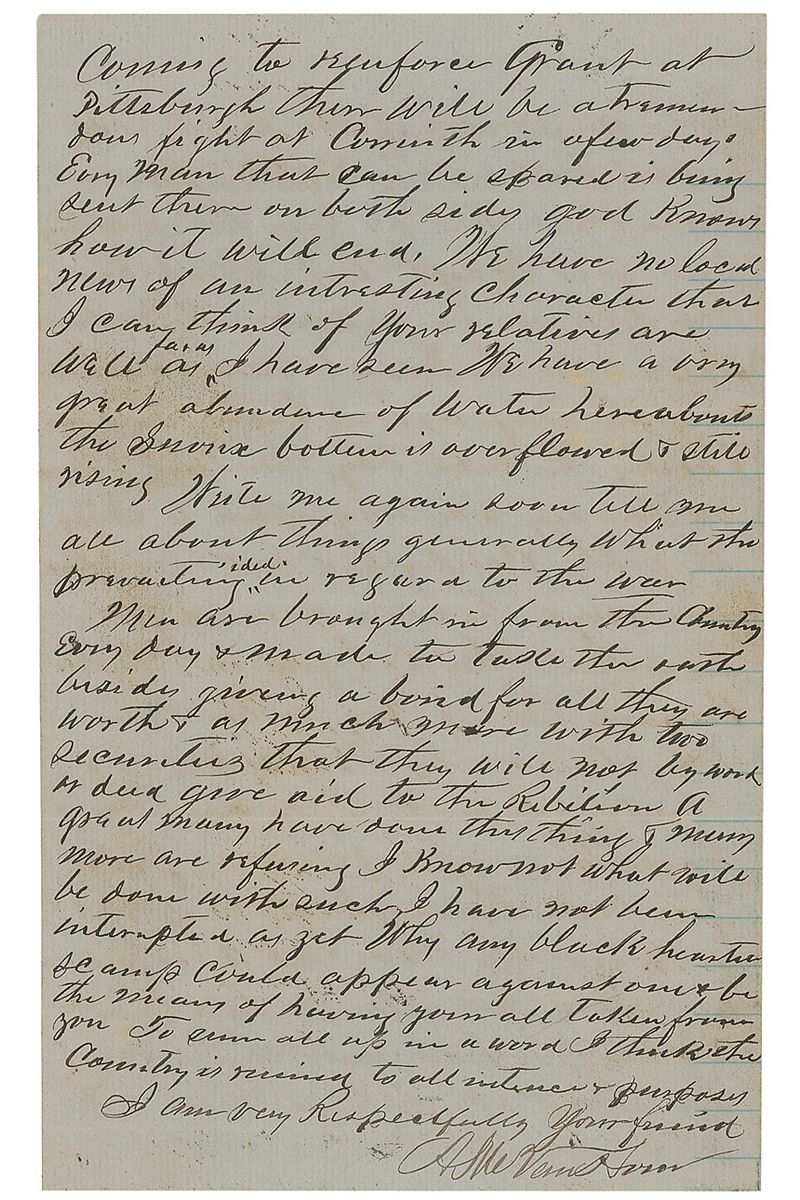 Coming to reenforce Grant at
Pittsburgh there will be a tremen-
dous fight at Corrinth in a few days
Evry man that can be spared is being
sent there on both sides god knows
how it will end. We have no local
news of an intresting character that
I can think of Your relatives are
well as faras I have seen We have a very
great abundence of water hereabouts
the bottem is overflowed & still
rising Write me again soon tell me
all about things generally What the
prevailing idea in regard to the war
Men are brought in from the Country
Evry day & made to take the oath
besides giveing a bond for all they are
worth & as much more with two
securities that they will not by word
or deed give aid to the Rebilion A
great many have done this thing & many
more are refusing I know not what will
be done with such I have not been
interupted as yet Why any black hearted
scamp could appear against one & be
the means of having your all taken from
you To sum all up in a word I think the
Country is ruined to all intence & purposes
I am very Respectfully Your friend